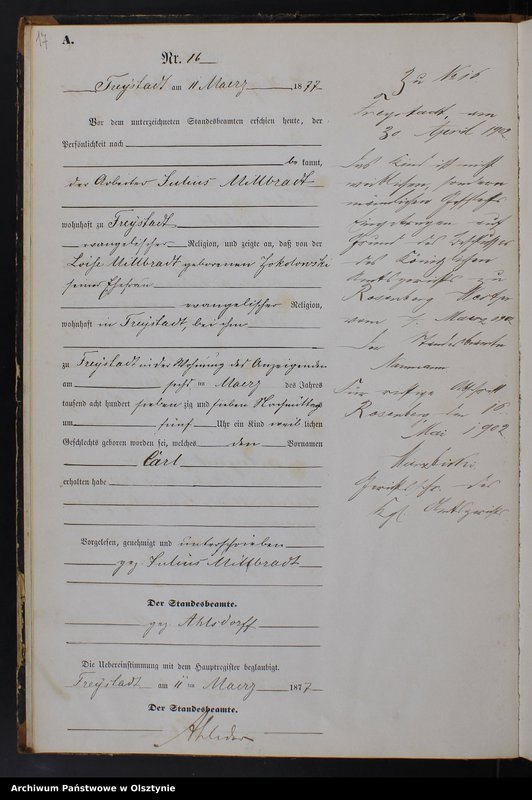 17
A.
Nr. 16
Freystadt am 11 Maerz 1877
Vor dem unterzeichneten Standesbeamten erschien heute, der
Persönlichkeit nach
be kannt,
der Arbeiter Julius Mittbradt
wohnhaft zu Freystadt
evangelischer Religion, und zeigte an, daß von der
Loise Mittbradt geborenen Zokolowski
seiner Ehefrau
evangelischer Religion,
wohnhaft in Freystadt, bei ihm
zu Freystadt in der Wohnung des Anzeigenden
am sechs ten Maerz des Jahres
tausend acht hundert sieben zig und sieben Nachmittags
um fünf Uhr ein Kind weib lichen
Geschlechts geboren worden sei, welches den Vornamen
Carl
erhalten habe
Vorgelesen, genehmigt und unterschrieben
gez. Julius Mittbradt
Der Standesbeamte.
gez. Ahlsdorff
Die Uebereinstimmung mit dem Hauptregister beglaubigt.
Freystadt am 11 ten Maerz 1877
Der Standesbeamte.
Zu No 16
Freystadt, am
30 April 1902
Das Kind ist nicht
weiblichen, sondern
männlichen Geschlechts
Eingetragen auf
Grund des Beschlusses
des Königlichen
Amtsgerichts zu
Rosenberg Westpr
vom 7. Maerz 1902
Der Standesbeamte
Naumann
Für richtige Abschrift
Rosenberg den 16
Mai 1902
des
Kgl. Amtsgerichts
Archiwum Państwowe w Olsztynie